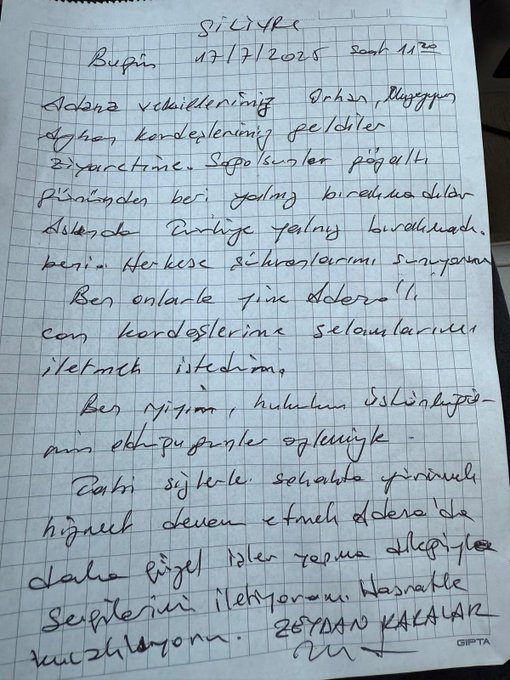 SİLİVRİ
Bugün 17/7/2025 saat 11 20
Adana vekillerimiz Orhan, Müzeyyen
Ayhan kardeşlerimiz geldiler
ziyaretime. Sağolsunlar gözaltı
gününden beri yalnız bırakmadılar
Aslında Türkiye yalnız bırakmadı.
beni. Herkese şükranlarımı sunuyorum
Ben onlarla yine Adana'lı
can kardeşlerime selamlarımı
iletmek istedim.
Ben iyiyim, hukukun üstünlüğü-
nün günler özlemiyle.
Tabi sizlerle sokakta yürümek
hizmete devam etmek Adana'da
daha güzel işler yapma dileğiyle
sevgilerimi iletiyorum. Hasretle
kucaklıyorum. ZEYDAN KARALAR
GIPTA